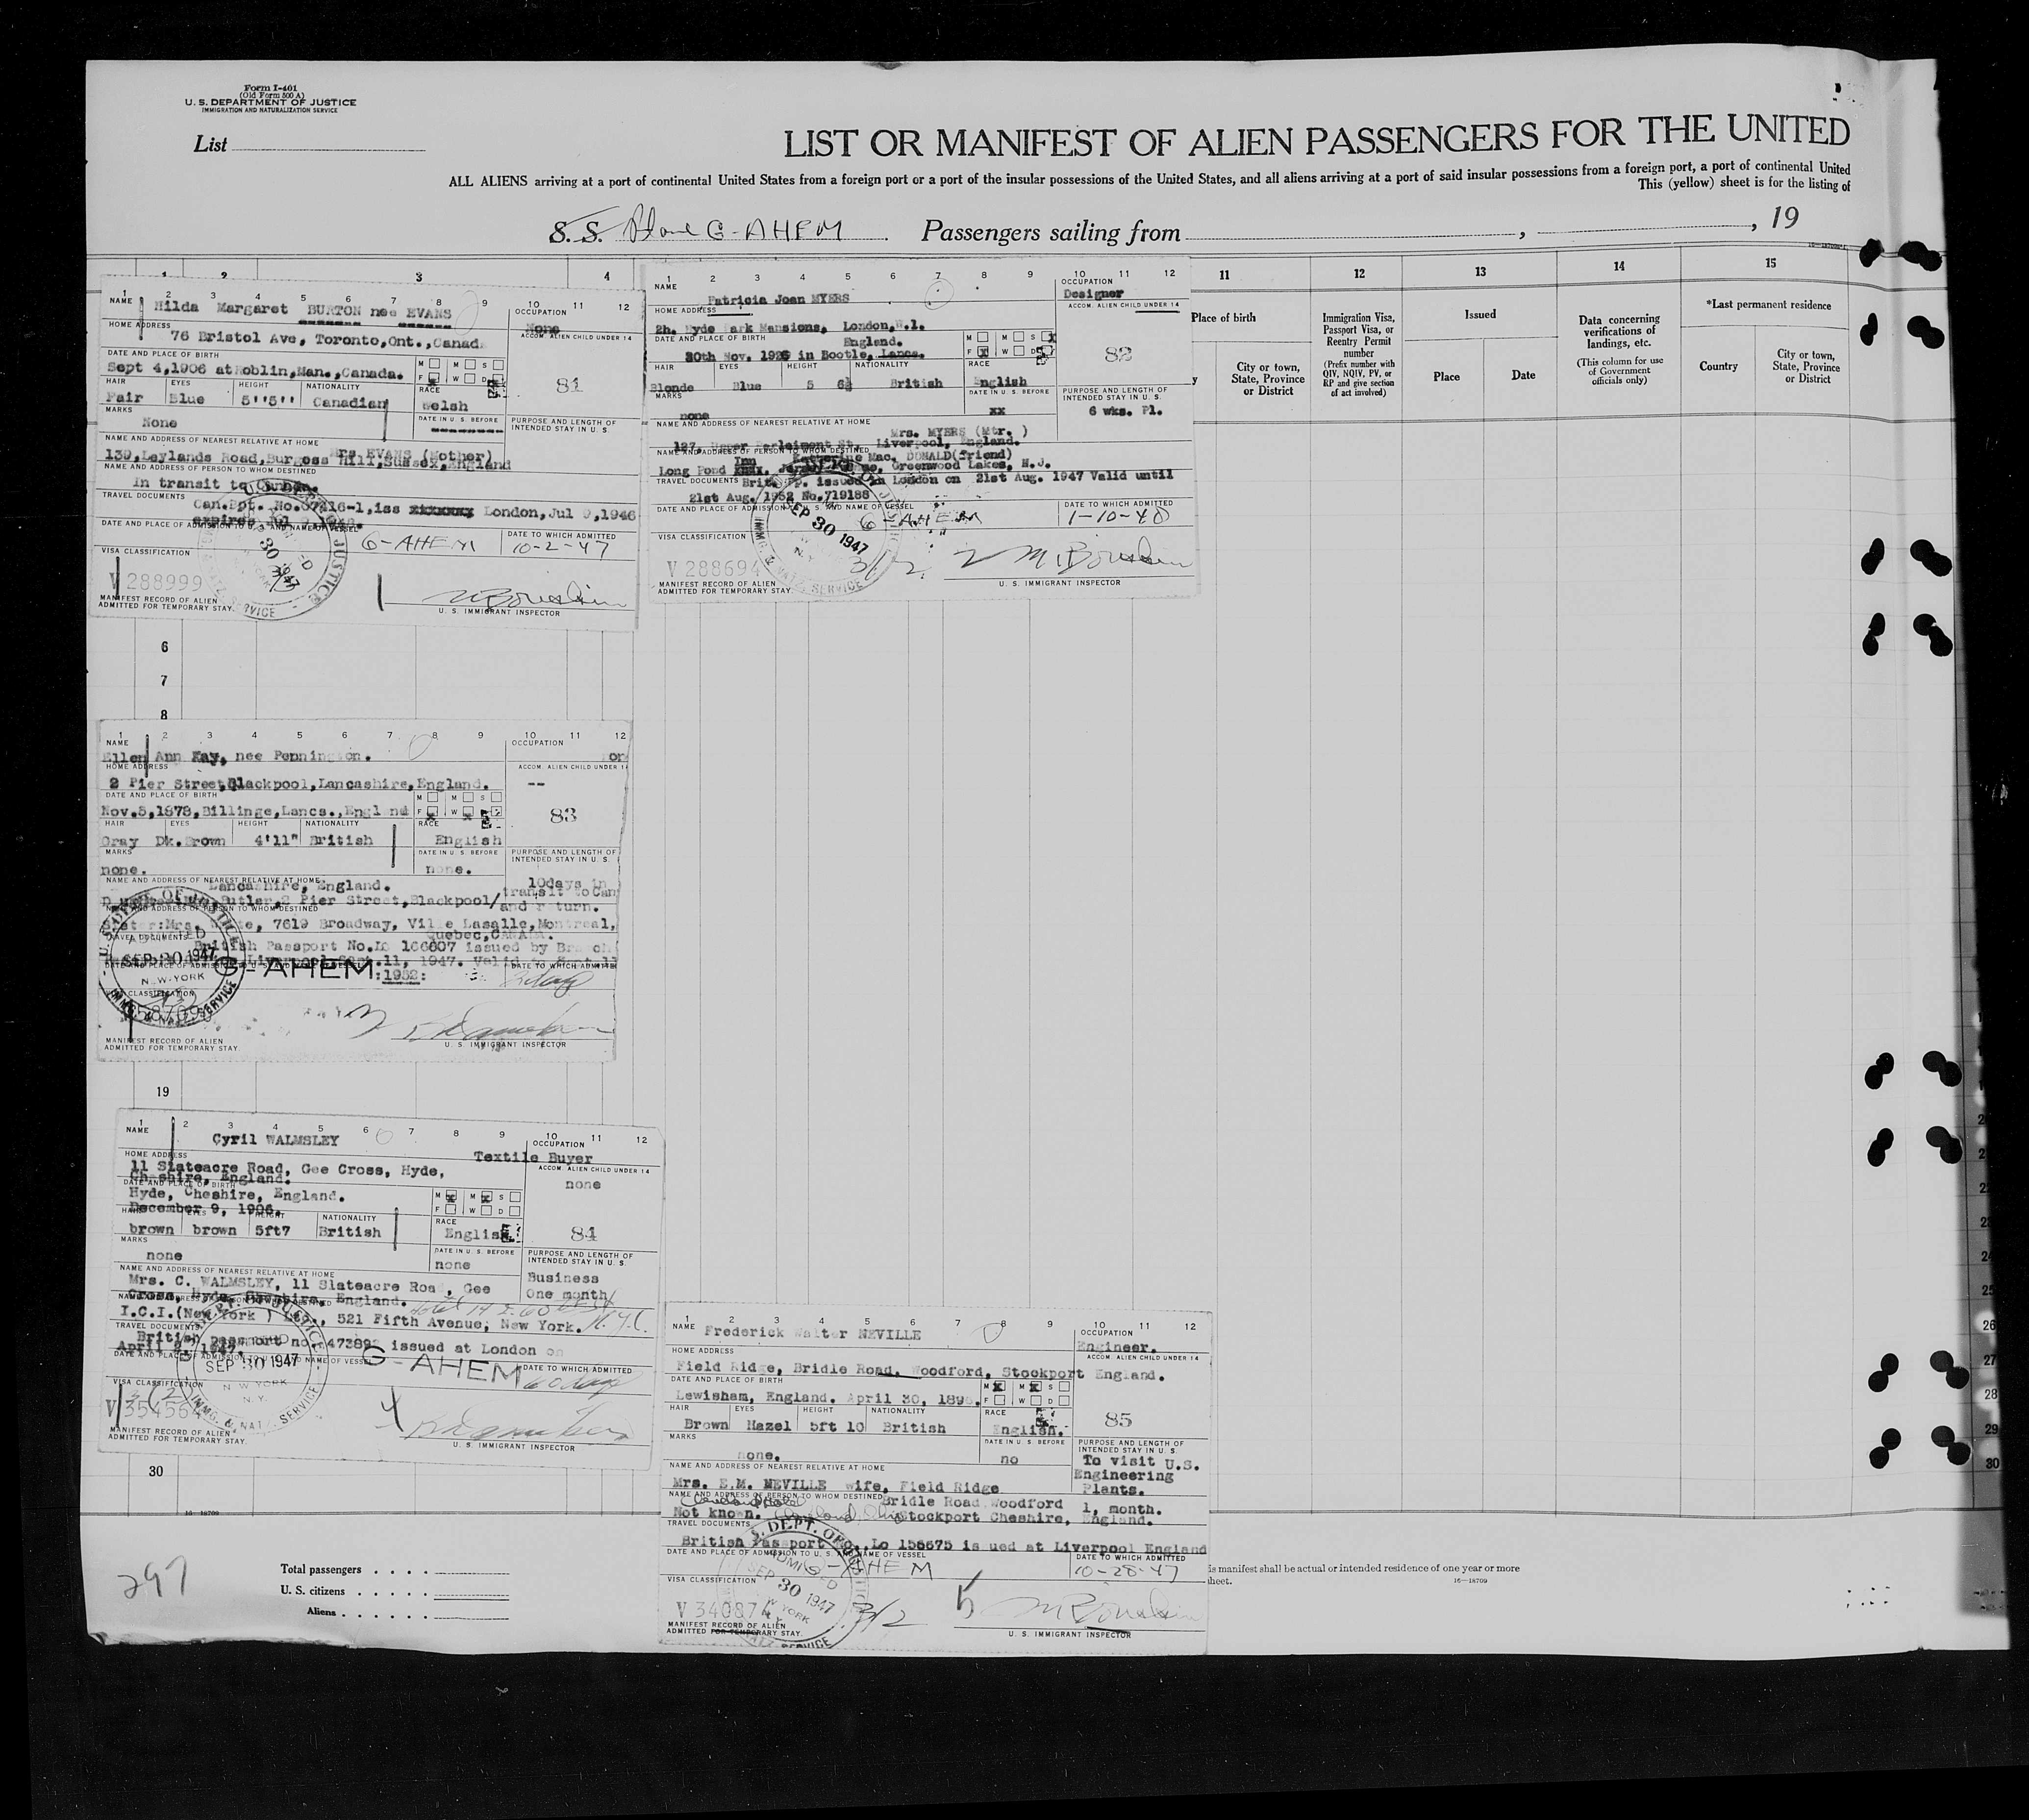 Form I-401
(Old Form 500 A)
U. S. DEPARTMENT OF JUSTICE
IMMIGRATION AND NATURALIZATION SERVICE
List
LIST OR MANIFEST OF ALIEN PASSENGERS FOR THE UNITED
ALL ALIENS arriving at a port of continental United States from a foreign port or a port of the insular possessions of the United States, and all aliens arriving at a port of said insular possessions from a foreign port, a port of continental United
This (yellow) sheet is for the listing of
S. S. Plane G-AHEM Passengers sailing from , , 19
1 2 3 4
11 12 13 14 15
Place of birth
City or town, State, Province or District
Immigration Visa, Passport Visa, or Reentry Permit number
(Prefix number with QIV, NQIV, PV, or RP and give section of act involved)
Issued
Place
Date
Data concerning verifications of landings, etc.
(This column for use of Government officials only)
*Last permanent residence
Country
City or town, State, Province or District
1 2 3 4 5 6 7 8 9 10 11 12
NAME
Hilda Margaret BURTON nee EVANS
OCCUPATION
None
HOME ADDRESS
ACCOM. ALIEN CHILD UNDER 14
76 Bristol Ave, Toronto,Ont.,Canad
DATE AND PLACE OF BIRTH
M M S
Sept 4,1906 at Roblin,Man.,Canada.
F W D
81
HAIR EYES HEIGHT NATIONALITY RACE
Fair Blue 5''5'' Canadian Welsh
MARKS
DATE IN U. S. BEFORE
PURPOSE AND LENGTH OF INTENDED STAY IN U. S.
None
NAME AND ADDRESS OF NEAREST RELATIVE AT HOME
Mrs EVANS (Mother)
139,Leylands Road,Burgess Hill,Sussex,England
NAME AND ADDRESS OF PERSON TO WHOM DESTINED
In transit to
TRAVEL DOCUMENTS
Can.Ppt. No.67416-1,iss London,Jul 9,1946
expires
DATE AND PLACE OF ADMISSION TO U. S. AND NAME OF VESSEL
DATE TO WHICH ADMITTED
G-AHEM 10-2-47
VISA CLASSIFICATION
V 288999
30 1947
MANIFEST RECORD OF ALIEN
ADMITTED FOR TEMPORARY STAY.
U. S. IMMIGRANT INSPECTOR
1 2 3 4 5 6 7 8 9 10 11 12
NAME
OCCUPATION
Patricia Joan MYERS
Designer
HOME ADDRESS
ACCOM. ALIEN CHILD UNDER 14
2h. Hyde Park Mansions, London,
DATE AND PLACE OF BIRTH
England.
M M S
30th Nov. 1926 in Bootle, Lancs.
F W D
82
HAIR EYES HEIGHT NATIONALITY RACE
Blonde Blue 5 6½ British English
MARKS
DATE IN U. S. BEFORE
PURPOSE AND LENGTH OF INTENDED STAY IN U. S.
none
xx
6 wks. Pl.
NAME AND ADDRESS OF NEAREST RELATIVE AT HOME
Mrs. MYERS (Mtr. )
127, Upper Parleiment St. Liverpool, England.
NAME AND ADDRESS OF PERSON TO WHOM DESTINED
Inn Katherine Mac. DONALD(friend)
Long Pond Greenwood Lakes, N.J.
TRAVEL DOCUMENTS
Brit. Pp. issued in London on 21st Aug. 1947 Valid until
21st Aug. 1952 No.719188
DATE AND PLACE OF ADMISSION TO U. S. AND NAME OF VESSEL
DATE TO WHICH ADMITTED
SEP 30 1947
G-AHEM 1-10-48
VISA CLASSIFICATION
3/2
V 288694
MANIFEST RECORD OF ALIEN
ADMITTED FOR TEMPORARY STAY.
2
U. S. IMMIGRANT INSPECTOR
6
7
8
1 2 3 4 5 6 7 8 9 10 11 12
NAME
OCCUPATION
Ellen Ann Kay, nee Pennington.
HOME ADDRESS
ACCOM. ALIEN CHILD UNDER 14
2 Pier Street,Blackpool,Lancashire,England.
--
DATE AND PLACE OF BIRTH
M M S
Nov.5,1878,Billinge,Lancs.,Engl nd
F W
83
HAIR EYES HEIGHT NATIONALITY RACE
Gray Dk.Brown 4'11" British English
MARKS
DATE IN U. S. BEFORE
PURPOSE AND LENGTH OF INTENDED STAY IN U. S.
none.
none.
NAME AND ADDRESS OF NEAREST RELATIVE AT HOME
10days in transit to Can and return.
Lancashire, England.
Butler,2 Pier Street,Blackpool/
NAME AND ADDRESS OF PERSON TO WHOM DESTINED
Sister:Mrs. 7619 Broadway, Ville Lasalle,Montreal,
Quebec,CANADA.
TRAVEL DOCUMENTS
British Passport No.Lo 166607 issued by Branch
Liverpool Sept.11, 1947. Valid
:1952:
SEP 30 1947
G-AHEM
DATE TO WHICH ADMITTED
NEW YORK
VISA CLASSIFICATION
3
MANIFEST RECORD OF ALIEN
ADMITTED FOR TEMPORARY STAY.
U. S. IMMIGRANT INSPECTOR
19
1 2 3 4 5 6 7 8 9 10 11 12
NAME
OCCUPATION
Cyril WALMSLEY
Textile Buyer
HOME ADDRESS
ACCOM. ALIEN CHILD UNDER 14
11 Slateacre Road, Gee Cross, Hyde,
Cheshire, England.
none
DATE AND PLACE OF BIRTH
Hyde, Cheshire, England.
M M S
December 9, 1906.
F W D
84
HAIR EYES HEIGHT NATIONALITY RACE
brown brown 5ft7 British English
MARKS
DATE IN U. S. BEFORE
PURPOSE AND LENGTH OF INTENDED STAY IN U. S.
none
none
Business
One month
NAME AND ADDRESS OF NEAREST RELATIVE AT HOME
Mrs. C. WALMSLEY, 11 Slateacre Road, Gee
Cross, Hyde, Cheshire, England.
I.C.I.(New York ) Ltd., 521 Fifth Avenue, New York.
N.Y.C.
TRAVEL DOCUMENTS
British passport no. 473892 issued at London on
April 2, 1947.
SEP 30 1947
G-AHEM
DATE TO WHICH ADMITTED
60 days
VISA CLASSIFICATION
3(2)
NEW YORK
N.Y.
MANIFEST RECORD OF ALIEN
ADMITTED FOR TEMPORARY STAY.
4
U. S. IMMIGRANT INSPECTOR
30
1 2 3 4 5 6 7 8 9 10 11 12
NAME
OCCUPATION
Frederick Walter NEVILLE
Engineer.
HOME ADDRESS
ACCOM. ALIEN CHILD UNDER 14
Field Ridge, Bridle Road, Woodford, Stockport England.
DATE AND PLACE OF BIRTH
M M S
Lewisham, England. April 30, 189
F W D
85
HAIR EYES HEIGHT NATIONALITY RACE
Brown Hazel 5ft 10 British English.
MARKS
DATE IN U. S. BEFORE
PURPOSE AND LENGTH OF INTENDED STAY IN U. S.
none.
no
To visit U.S. Engineering Plants.
1, month.
NAME AND ADDRESS OF NEAREST RELATIVE AT HOME
Mrs. E.M. NEVILLE wife, Field Ridge
NAME AND ADDRESS OF PERSON TO WHOM DESTINED
Cleveland Hotel
Bridle Road Woodford
Not known. Cleveland, Ohio
Stockport Cheshire, England.
TRAVEL DOCUMENTS
British Passport No., Lo 156675 is ued at Liverpool England
DATE AND PLACE OF ADMISSION TO U. S. AND NAME OF VESSEL
DATE TO WHICH ADMITTED
G-AHEM 10-28-47
SEP 30 1947
VISA CLASSIFICATION
3/2
V 340874
MANIFEST RECORD OF ALIEN
ADMITTED FOR TEMPORARY STAY.
5
U. S. IMMIGRANT INSPECTOR
16-18709
297
Total passengers
U. S. citizens
Aliens
is manifest shall be actual or intended residence of one year or more
sheet.
16—18709
27
28
29
30